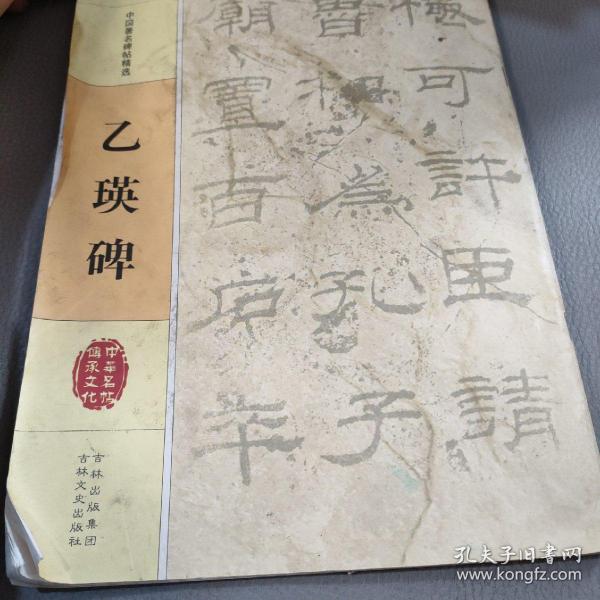 中国著名碑帖精选
乙瑛碑
中华名帖
傳承文化
吉林出版集团
吉林文史出版社
極可許臣請
魯相為孔子
廟置百石卒
孔夫子旧书网
www.kongfz.com